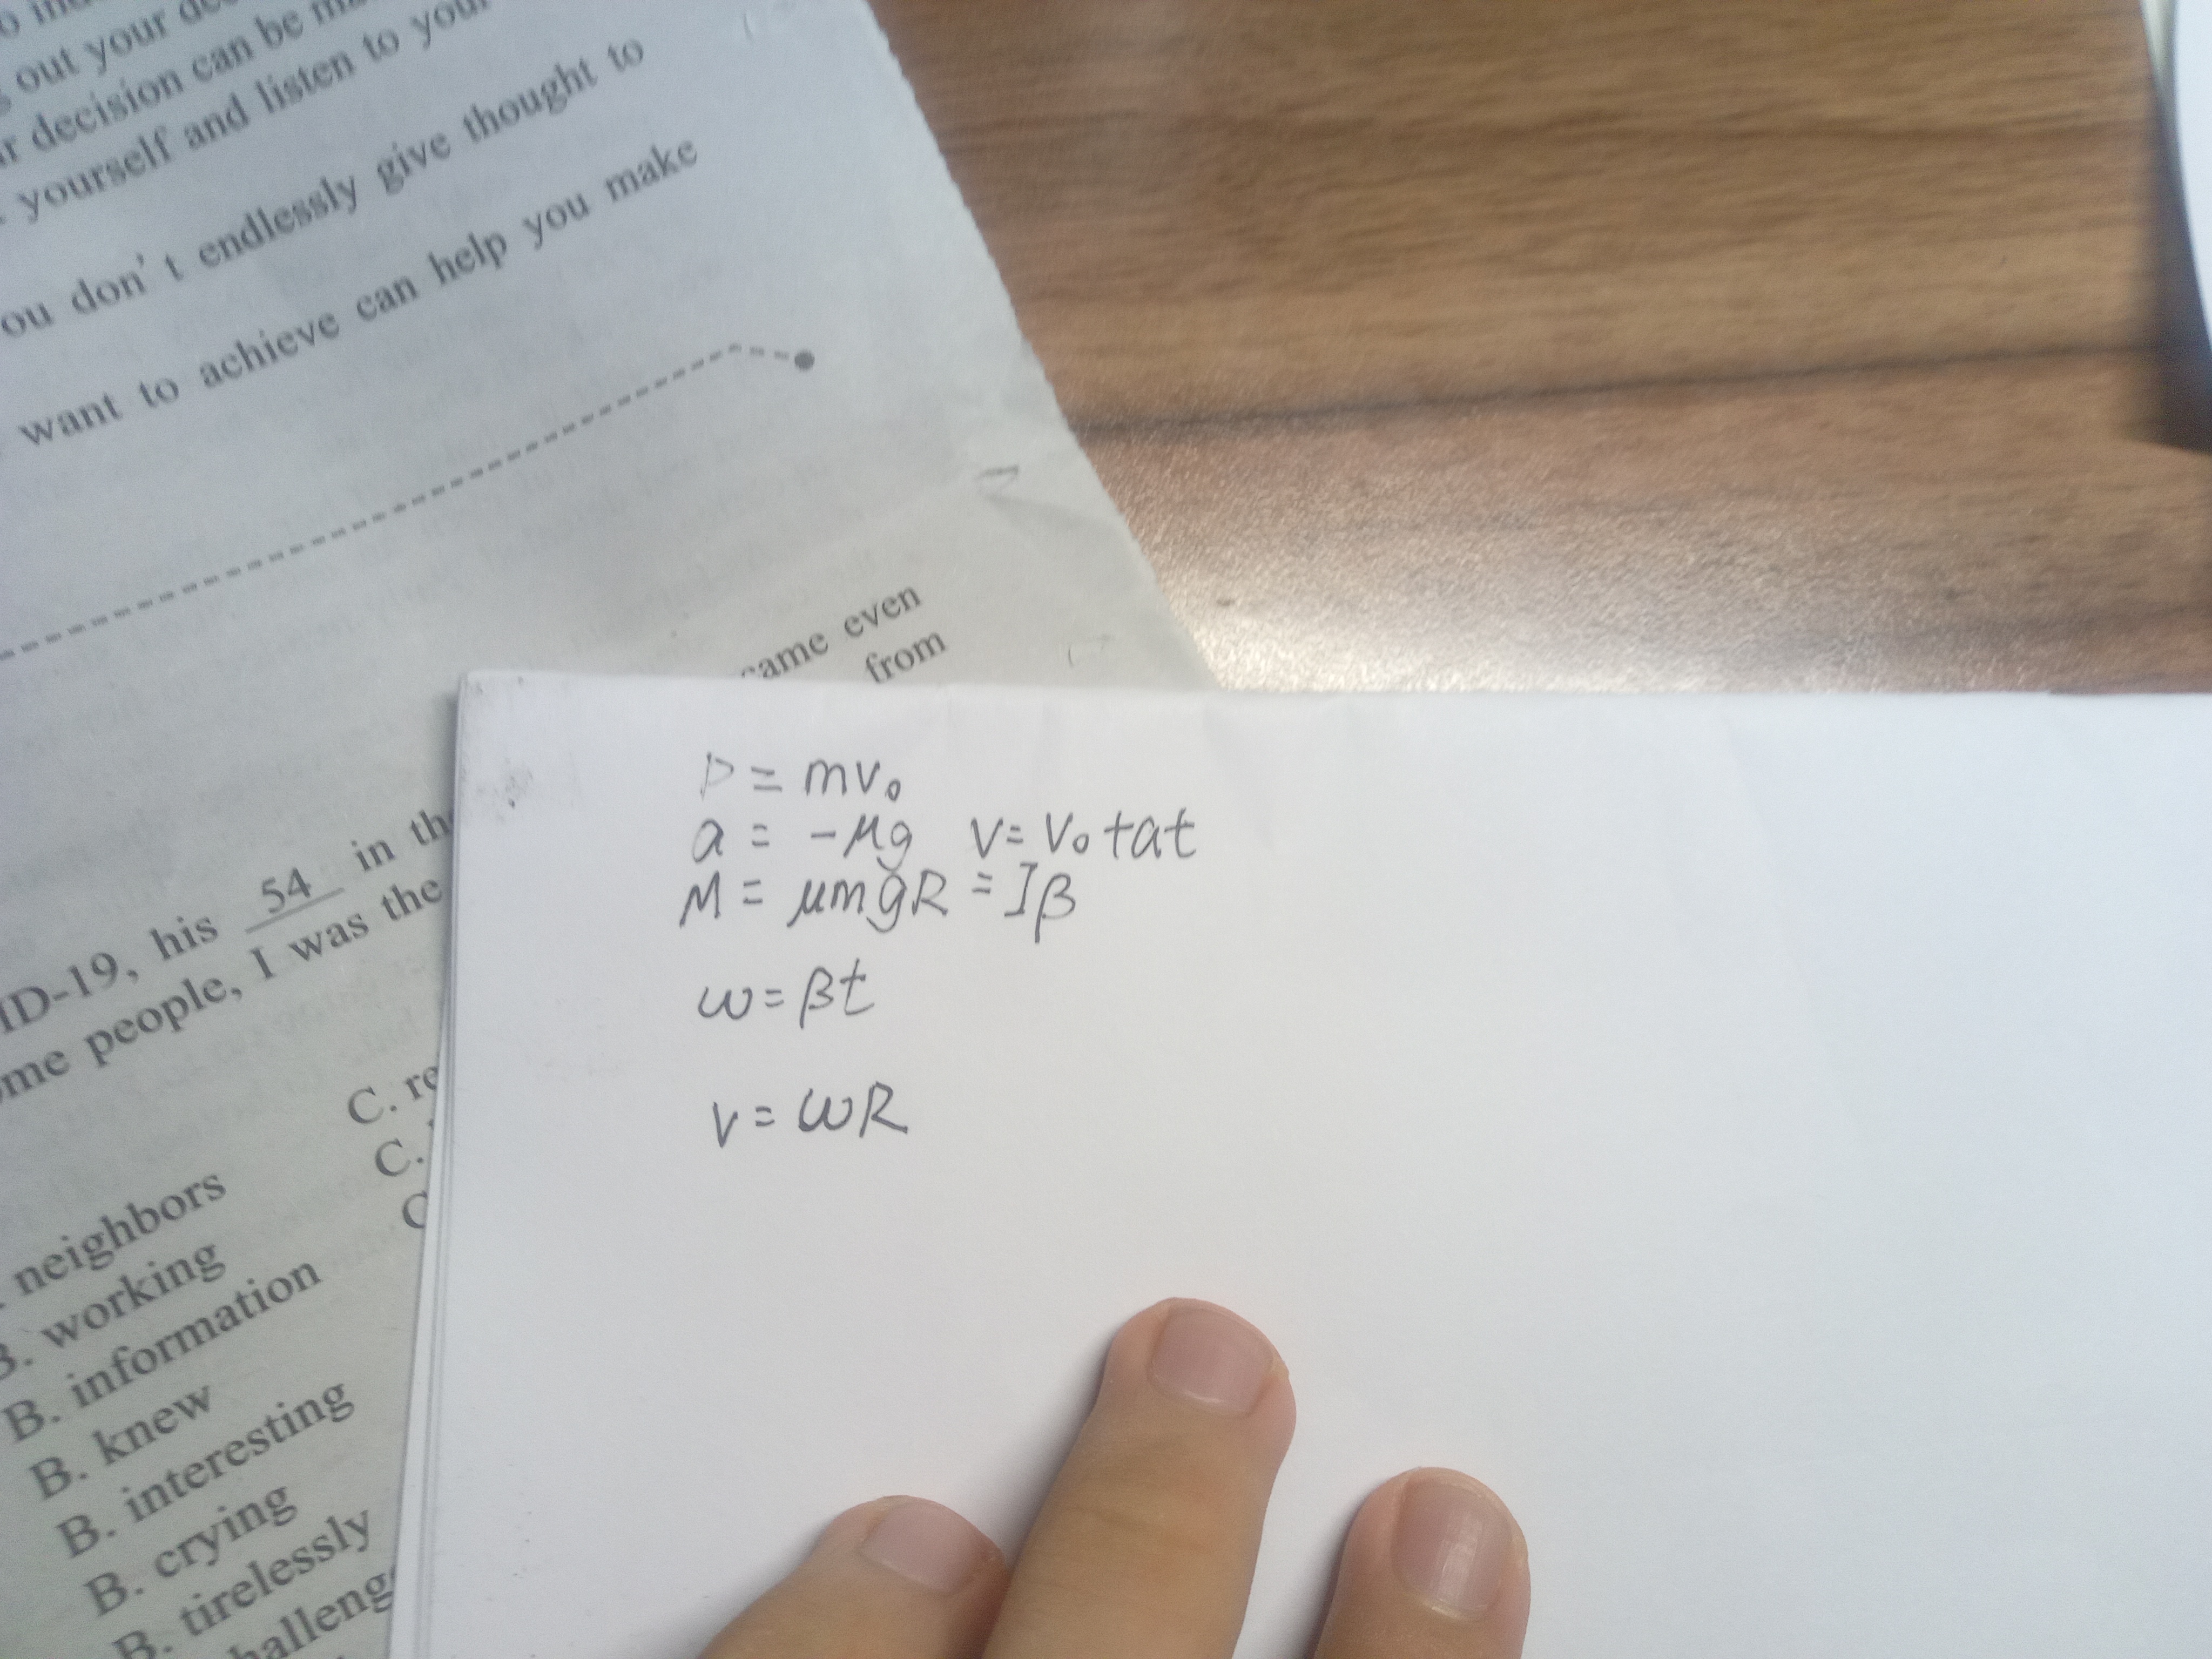 out your
decision can be
yourself and listen to your
don't endlessly give thought to
want to achieve can help you make
even
from
his 54 in
people, I was the
C.
C.
neighbors
working
B. information
B. knew
B. interesting
B. crying
B. tirelessly
P = mv₀
a = -μg v = v₀ + at
M = μmgR = Iβ
ω = βt
v = ωR